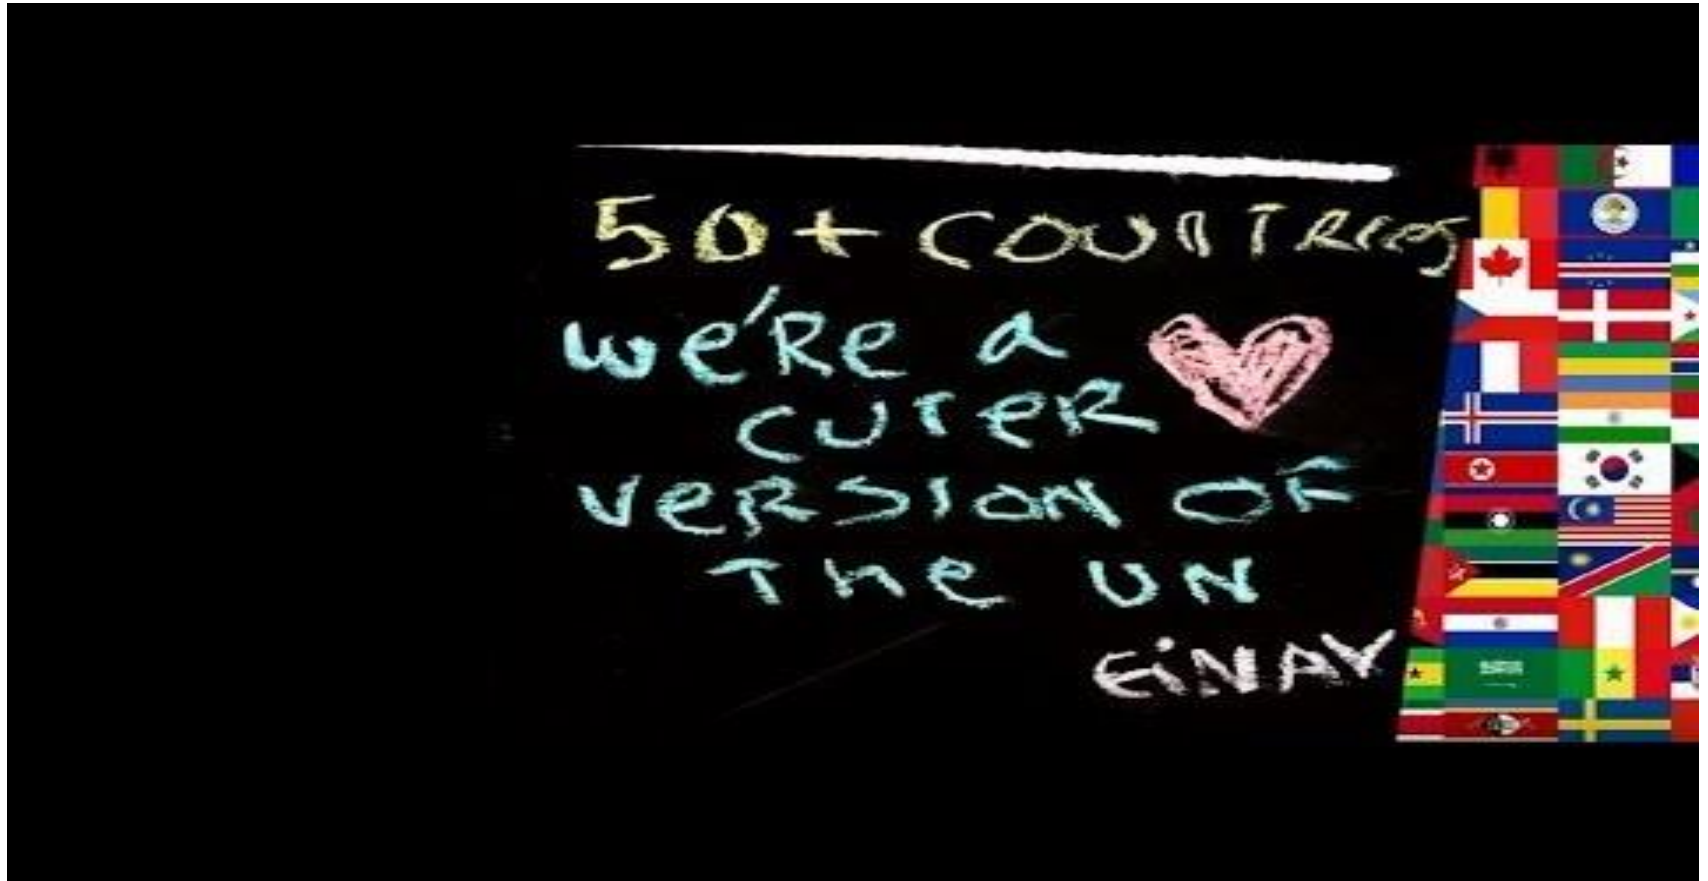 50+ COUNTRIES
we're a
cuter
version of
The UN
EiNAV